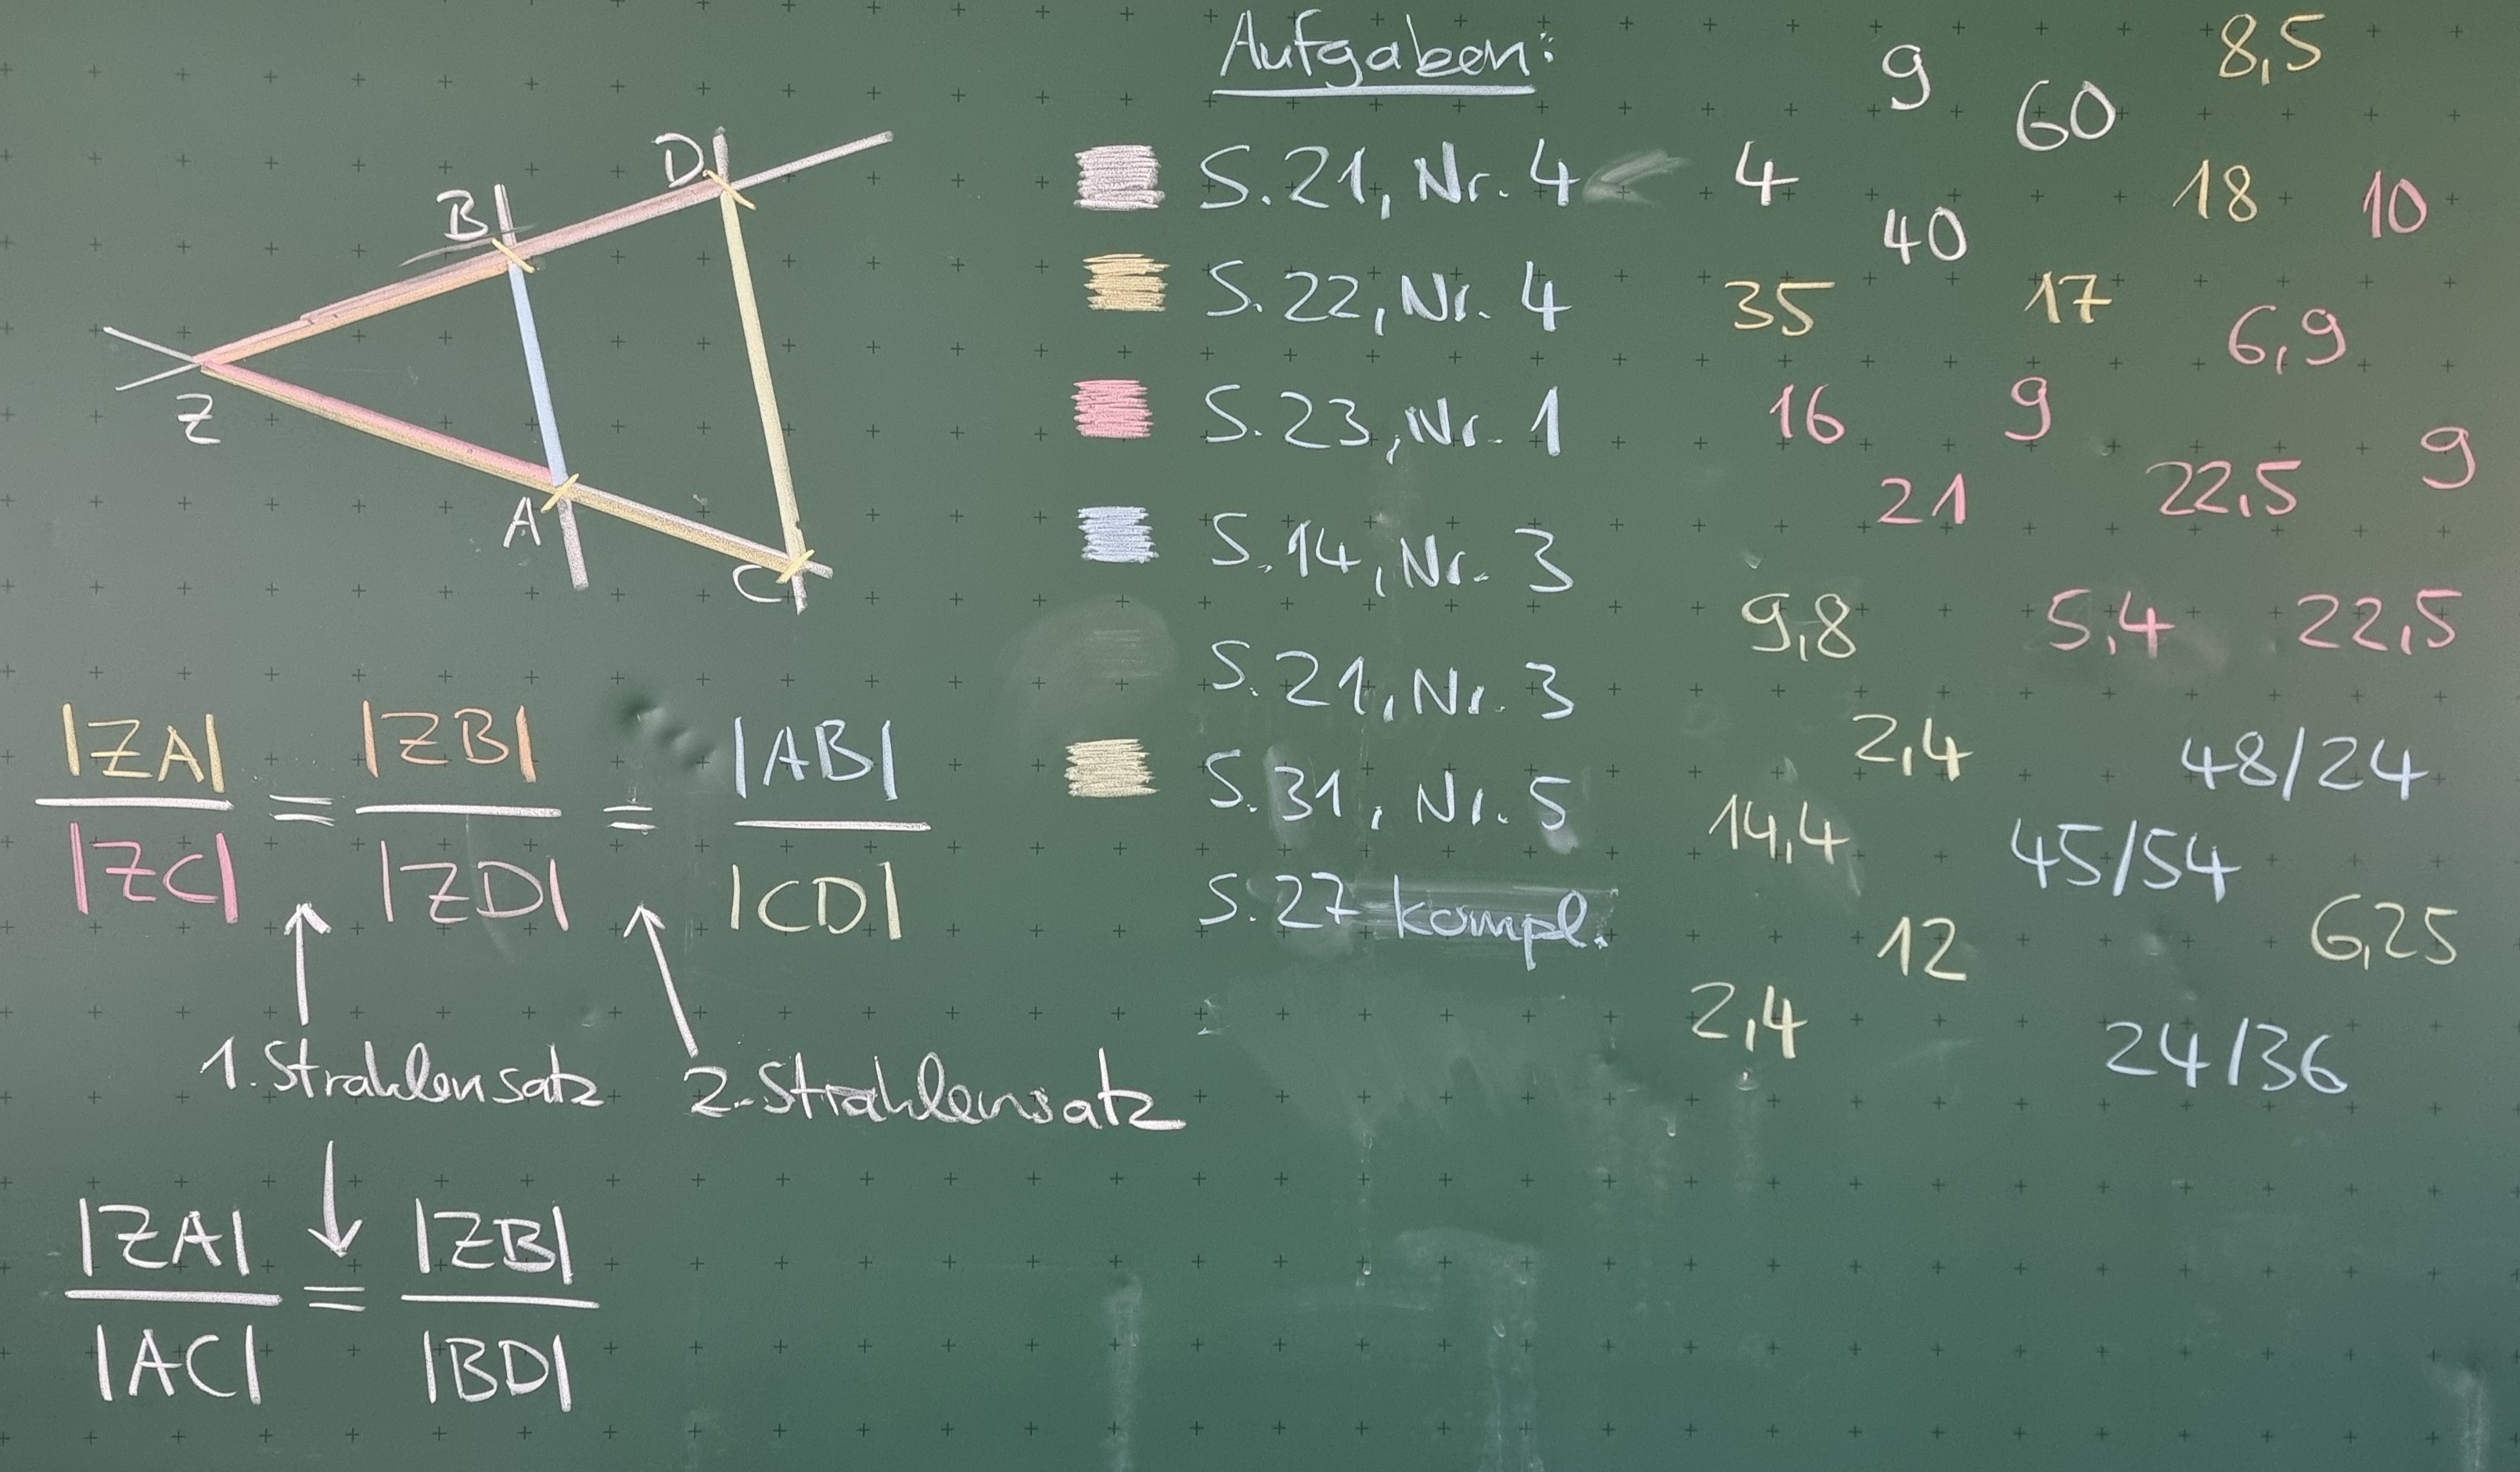 D
B
Z
A
C
|ZA| / |ZC| = |ZB| / |ZD| = |AB| / |CD|
1. Strahlensatz
2. Strahlensatz
|ZA| / |AC| = |ZB| / |BD|
Aufgaben:
S. 21, Nr. 4
S. 22, Nr. 4
S. 23, Nr. 1
S. 14, Nr. 3
S. 21, Nr. 3
S. 31, Nr. 5
S. 27 kompl.
9
8,5
60
4
18
10
40
35
17
6,9
16
9
9
21
22,5
9,8
5,4
22,5
2,4
48/24
14,4
45/54
12
6,25
2,4
24/36